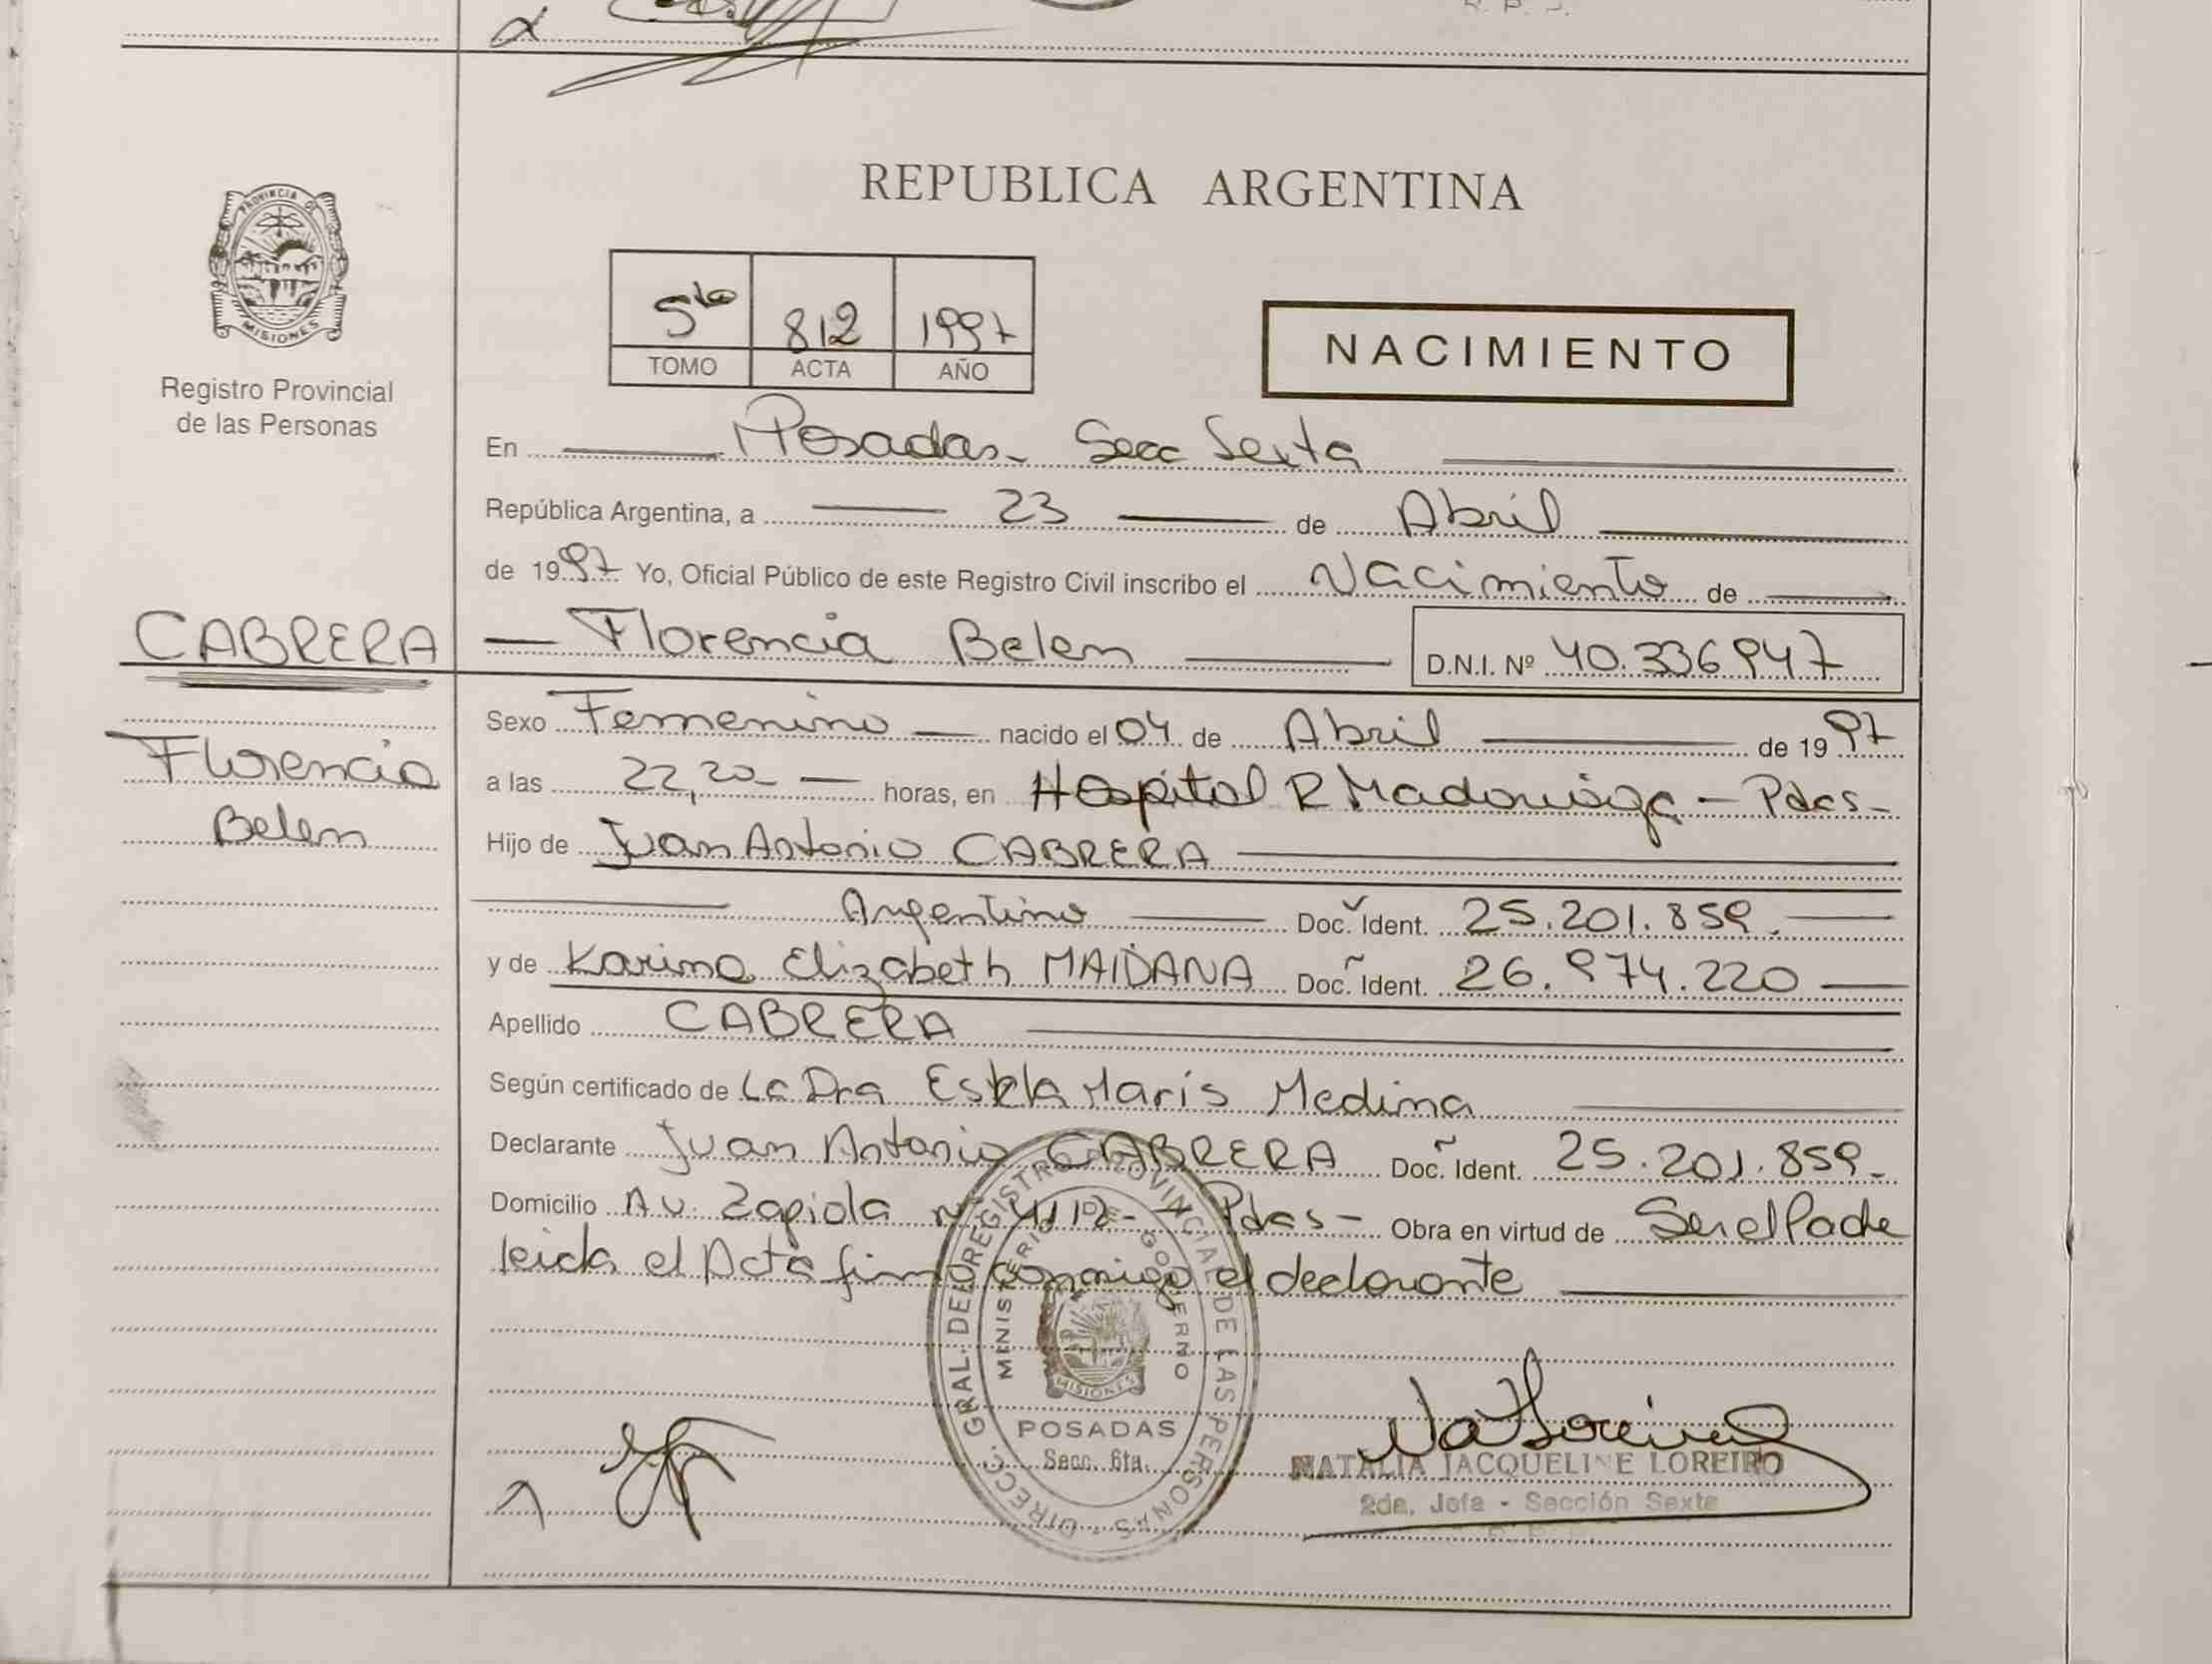 R. P. P.
PROVINCIA DE
MISIONES
Registro Provincial
de las Personas
REPUBLICA ARGENTINA
5to 812 1997
TOMO ACTA AÑO
NACIMIENTO
En Posadas- Secc Sexta
República Argentina, a 23 de Abril
de 1997 Yo, Oficial Público de este Registro Civil inscribo el Nacimiento de
CABRERA
Florencia Belen D.N.I. Nº 40.336947
Florencia
Belen
Sexo Femenino nacido el 04 de Abril de 1997
a las 22,20 horas, en Hospital R Madariaga - Pdas-
Hijo de Juan Antonio CABRERA
Argentino Doc. Ident. 25.201.859.
y de Karina Elizabeth MAIDANA Doc. Ident. 26.974.220
Apellido CABRERA
Según certificado de La Dra Estela Maris Medina
Declarante Juan Antonio CABRERA Doc. Ident. 25.201.859-
Domicilio Av. Zapiola Nº 4112- Pdas- Obra en virtud de Ser el Padre
leida el Acta firma conmigo el declarante
DIRECC. GRAL. DEL REGISTRO PROVINCIAL DE LAS PERSONAS
MINISTERIO DE GOBIERNO
MISIONES
POSADAS
Secc. 6ta.
NATALIA JACQUELINE LOREIRO
2da. Jefa - Sección Sexta
R. P. P.